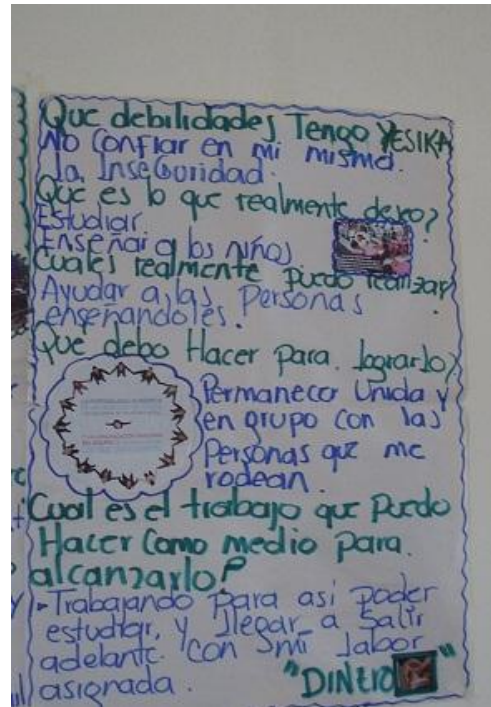 Que debilidades Tengo YESIKA
No Confiar en mi misma.
la Inseguridad.
Que es lo que realmente deseo?
Estudiar
Enseñar a los niños
Cuales realmente puedo realizar
Ayudar a las Personas
enseñandoles.
Que debo Hacer para lograrlo?
Permanecer Unida y
en grupo con las
Personas que me
rodean.
Cual es el trabajo que Puedo
Hacer Como medio para.
alcanzarlo?
-Trabajando Para asi poder
estudiar, y llegar a Salir
adelante con mi labor
asignada.
"DINERO"